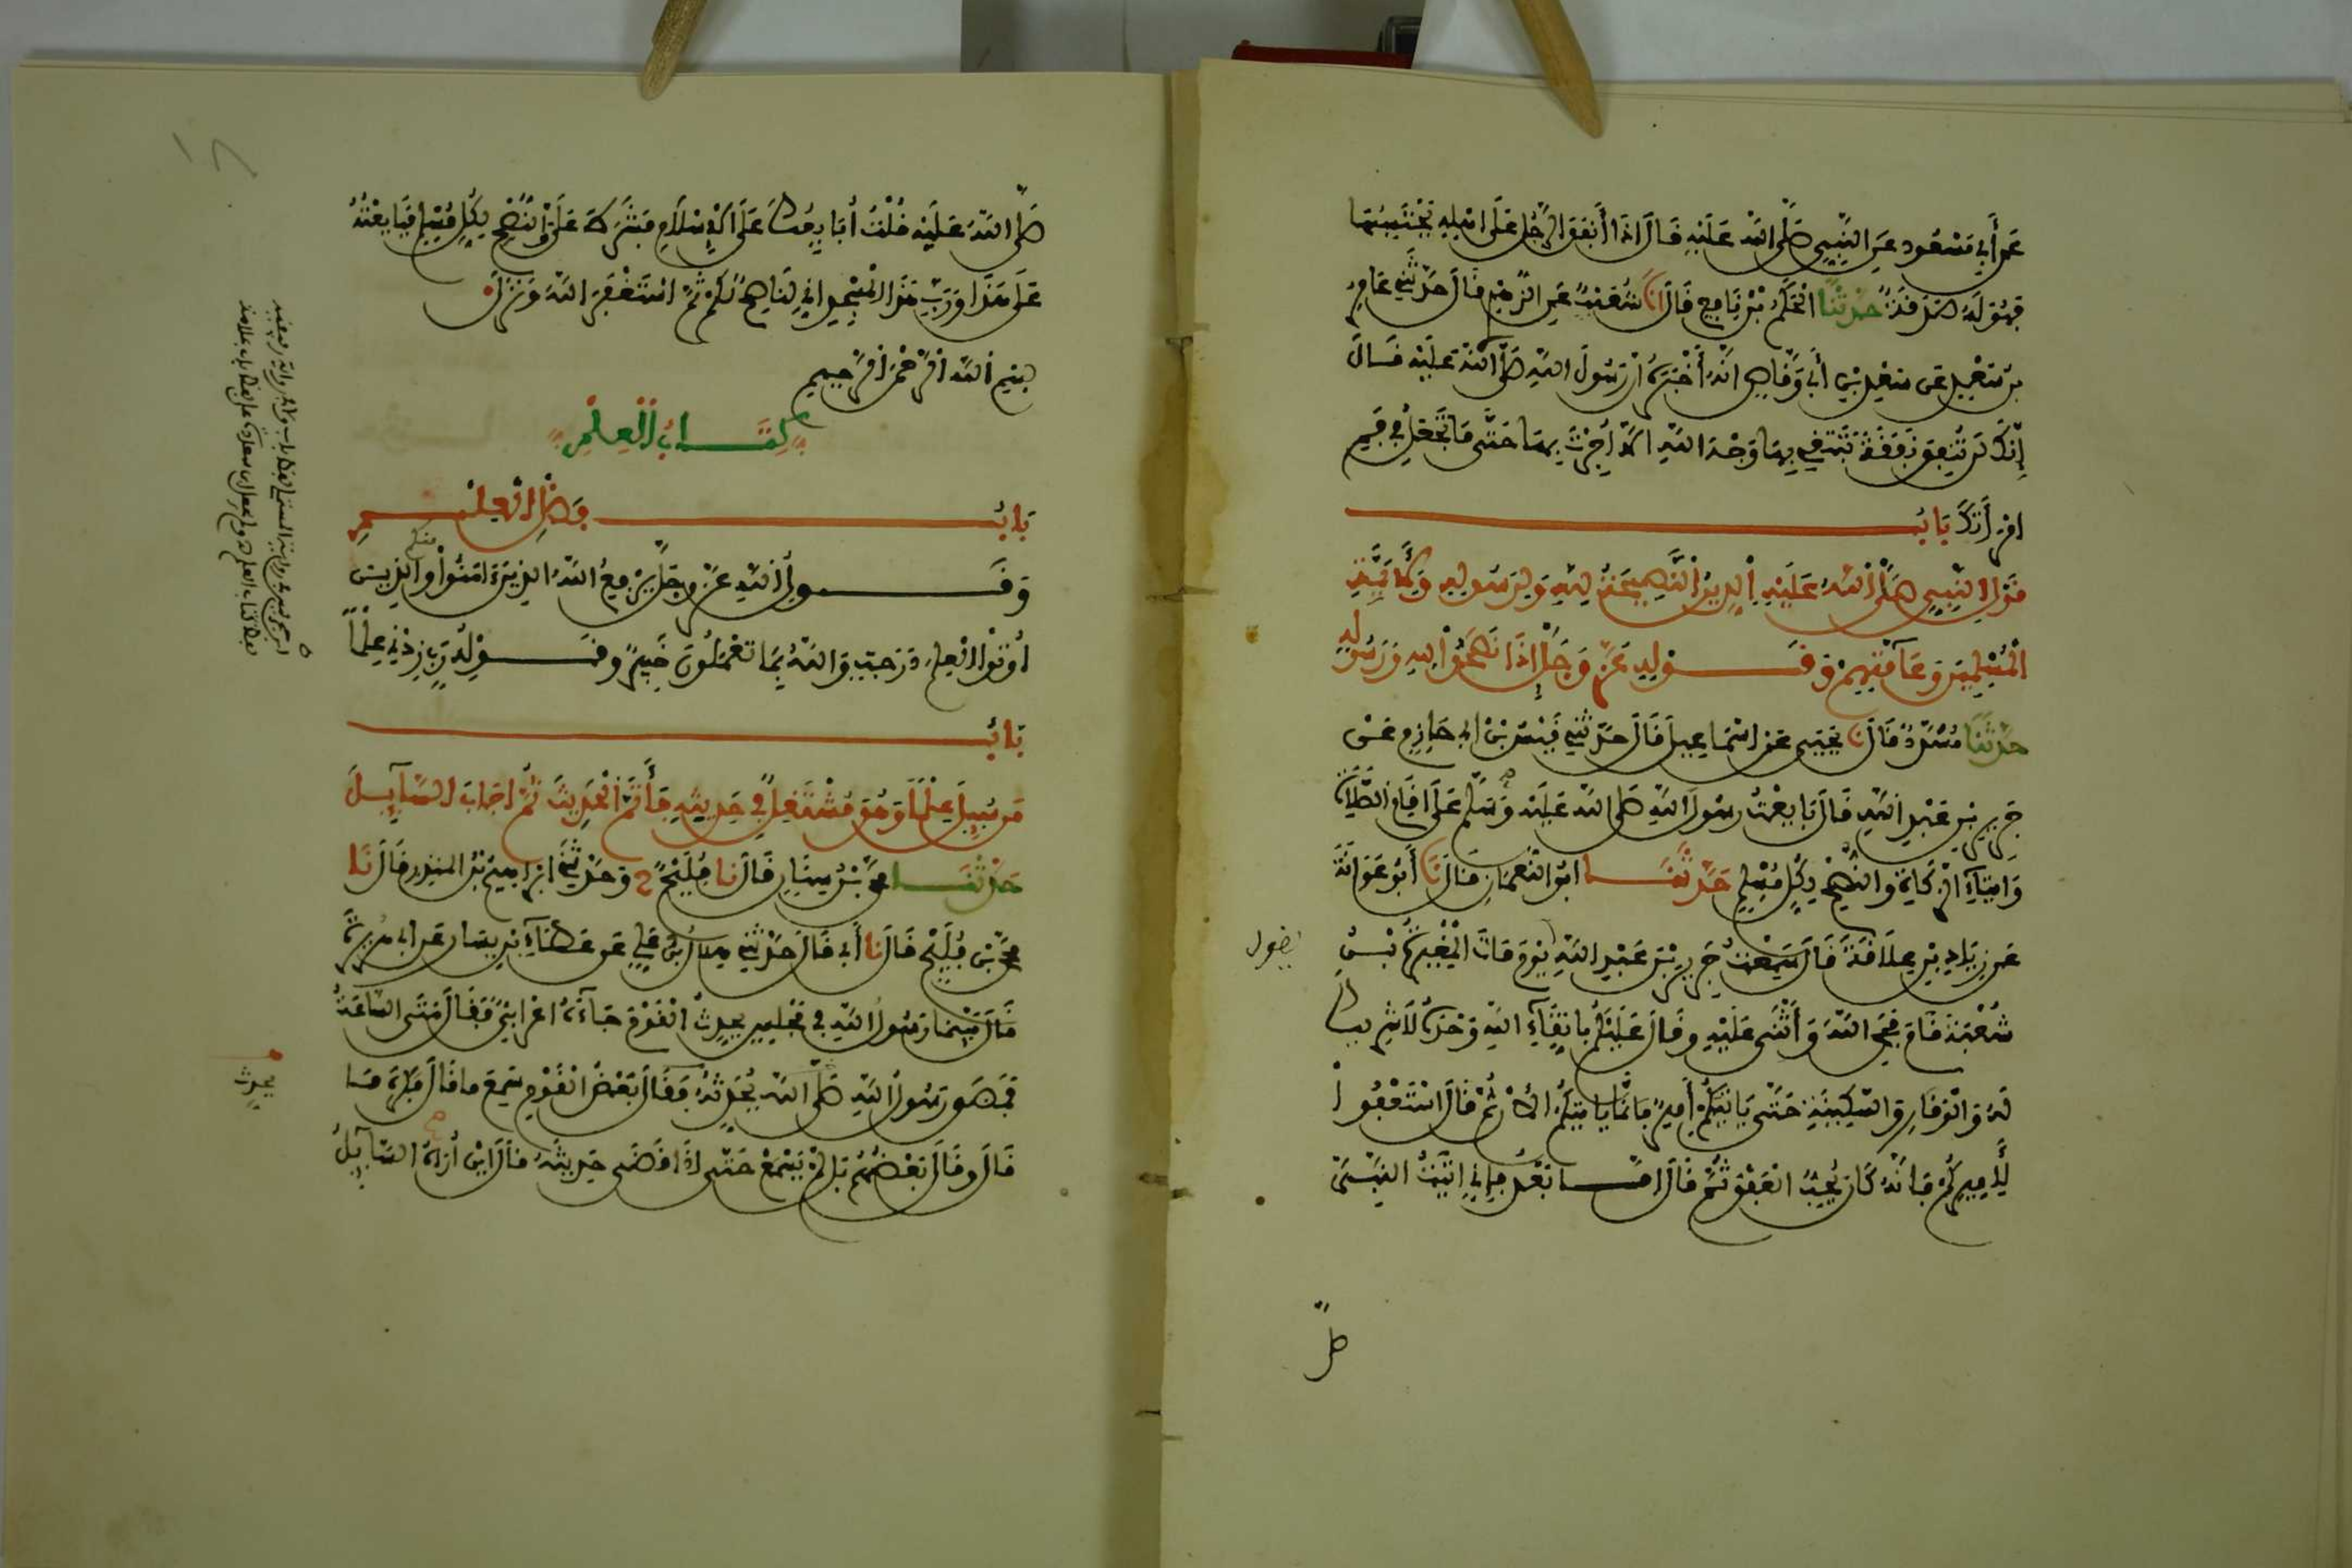 عَنْ أَبِي مَسْعُودٍ عَنِ النَّبِيِّ صَلَّى اللَّهُ عَلَيْهِ قَالَ إِذَا أَنْفَقَ الرَّجُلُ عَلَى أَهْلِهِ يَحْتَسِبُهَا
فَهُوَ لَهُ صَدَقَةٌ حَدَّثَنَا الْحَكَمُ بْنُ نَافِعٍ قَالَ أَنَا شُعَيْبٌ عَنِ الزُّهْرِيِّ قَالَ حَدَّثَنِي عَامِرُ
بْنُ سَعْدٍ عَنْ سَعْدِ بْنِ أَبِي وَقَّاصٍ أَنَّهُ أَخْبَرَهُ أَنَّ رَسُولَ اللَّهِ صَلَّى اللَّهُ عَلَيْهِ قَالَ
إِنَّكَ لَنْ تُنْفِقَ نَفَقَةً تَبْتَغِي بِهَا وَجْهَ اللَّهِ إِلَّا أُجِرْتَ بِهَا حَتَّى مَا تَجْعَلُ فِي فَمِ
امْرَأَتِكَ بَابُ
قَوْلِ النَّبِيِّ صَلَّى اللَّهُ عَلَيْهِ الدِّينُ النَّصِيحَةُ لِلَّهِ وَلِرَسُولِهِ وَلِأَئِمَّةِ
الْمُسْلِمِينَ وَعَامَّتِهِمْ وَقَوْلِهِ عَزَّ وَجَلَّ إِذَا نَصَحُوا لِلَّهِ وَرَسُولِهِ
حَدَّثَنَا مُسَدَّدٌ قَالَ نَا يَحْيَى عَنْ إِسْمَاعِيلَ قَالَ حَدَّثَنِي قَيْسُ بْنُ أَبِي حَازِمٍ عَنْ
جَرِيرِ بْنِ عَبْدِ اللَّهِ قَالَ بَايَعْتُ رَسُولَ اللَّهِ صَلَّى اللَّهُ عَلَيْهِ وَسَلَّمَ عَلَى إِقَامِ الصَّلَاةِ
وَإِيتَاءِ الزَّكَاةِ وَالنُّصْحِ لِكُلِّ مُسْلِمٍ حَدَّثَنَا أَبُو النُّعْمَانِ قَالَ نَا أَبُو عَوَانَةَ
عَنْ زِيَادِ بْنِ عِلَاقَةَ قَالَ سَمِعْتُ جَرِيرَ بْنَ عَبْدِ اللَّهِ يَوْمَ مَاتَ الْمُغِيرَةُ بْنُ
يقول
شُعْبَةَ قَامَ فَحَمِدَ اللَّهَ وَأَثْنَى عَلَيْهِ وَقَالَ عَلَيْكُمْ بِاتِّقَاءِ اللَّهِ وَحْدَهُ لَا شَرِيكَ
لَهُ وَالْوَقَارِ وَالسَّكِينَةِ حَتَّى يَأْتِيَكُمْ أَمِيرٌ فَإِنَّمَا يَأْتِيكُمُ الْآنَ ثُمَّ قَالَ اسْتَعْفُوا
لِأَمِيرِكُمْ فَإِنَّهُ كَانَ يُحِبُّ الْعَفْوَ ثُمَّ قَالَ أَمَّا بَعْدُ فَإِنِّي أَتَيْتُ النَّبِيَّ
صَلَّى اللَّهُ عَلَيْهِ قُلْتُ أُبَايِعُكَ عَلَى الْإِسْلَامِ فَشَرَطَ عَلَيَّ وَالنُّصْحِ لِكُلِّ مُسْلِمٍ فَبَايَعْتُهُ
عَلَى هَذَا وَرَبِّ هَذَا الْمَسْجِدِ إِنِّي لَنَاصِحٌ لَكُمْ ثُمَّ اسْتَغْفَرَ اللَّهَ وَنَزَلَ
بِسْمِ اللَّهِ الرَّحْمَنِ الرَّحِيمِ
كِتَابُ الْعِلْمِ
بَابُ فَضْلِ الْعِلْمِ
وَقَوْلِ اللَّهِ عَزَّ وَجَلَّ يَرْفَعِ اللَّهُ الَّذِينَ آمَنُوا مِنْكُمْ وَالَّذِينَ
أُوتُوا الْعِلْمَ دَرَجَاتٍ وَاللَّهُ بِمَا تَعْمَلُونَ خَبِيرٌ وَقَوْلِهِ رَبِّ زِدْنِي عِلْمًا
بَابُ
مَنْ سُئِلَ عِلْمًا وَهُوَ مُشْتَغِلٌ فِي حَدِيثِهِ فَأَتَمَّ الْحَدِيثَ ثُمَّ أَجَابَ السَّائِلَ
حَدَّثَنَا مُحَمَّدُ بْنُ سِنَانٍ قَالَ نَا فُلَيْحٌ ح وَحَدَّثَنِي إِبْرَاهِيمُ بْنُ الْمُنْذِرِ قَالَ نَا
مُحَمَّدُ بْنُ فُلَيْحٍ قَالَ نَا أَبِي قَالَ حَدَّثَنِي هِلَالُ بْنُ عَلِيٍّ عَنْ عَطَاءِ بْنِ يَسَارٍ عَنْ أَبِي هُرَيْرَةَ
قَالَ بَيْنَمَا رَسُولُ اللَّهِ فِي مَجْلِسٍ يُحَدِّثُ الْقَوْمَ جَاءَهُ أَعْرَابِيٌّ فَقَالَ مَتَى السَّاعَةُ
فَمَضَى رَسُولُ اللَّهِ صَلَّى اللَّهُ يُحَدِّثُهُ فَقَالَ بَعْضُ الْقَوْمِ سَمِعَ مَا قَالَ فَكَرِهَ مَا
يحدث
قَالَ وَقَالَ بَعْضُهُمْ بَلْ لَمْ يَسْمَعْ حَتَّى إِذَا قَضَى حَدِيثَهُ قَالَ أَيْنَ أُرَاهُ السَّائِلُ